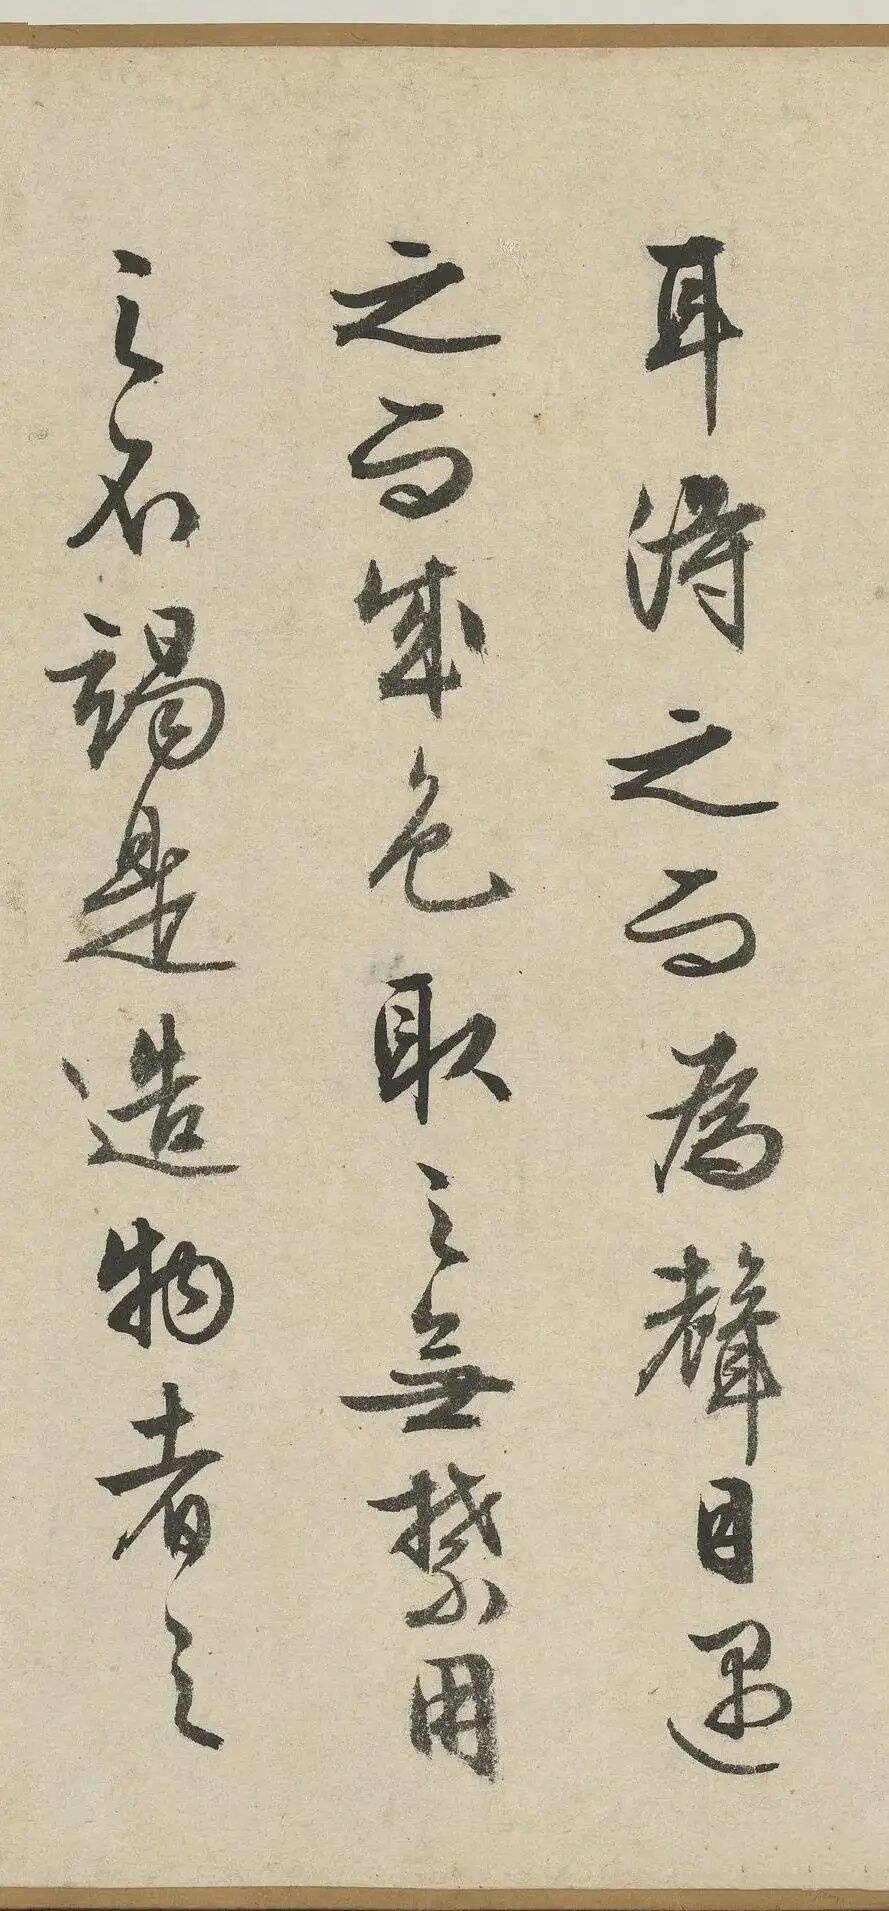 耳得之而為聲目遇
之而成色取之無禁用
之不竭是造物者之